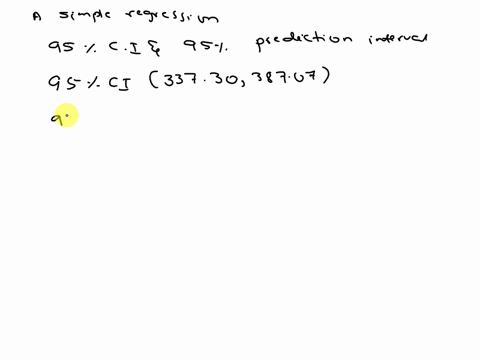 A simple regression
95 % C.I & 95% prediction interval
95 % CI (337.30, 387.07)
9